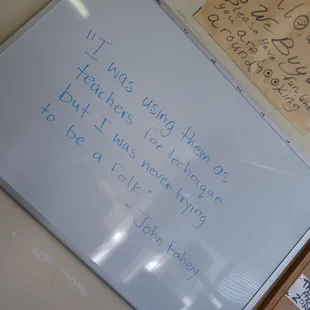 "I was using them as
teachers for technique
but I was never trying
to be a folk"
- John Fahey
We Buy
please have
you are
around looking